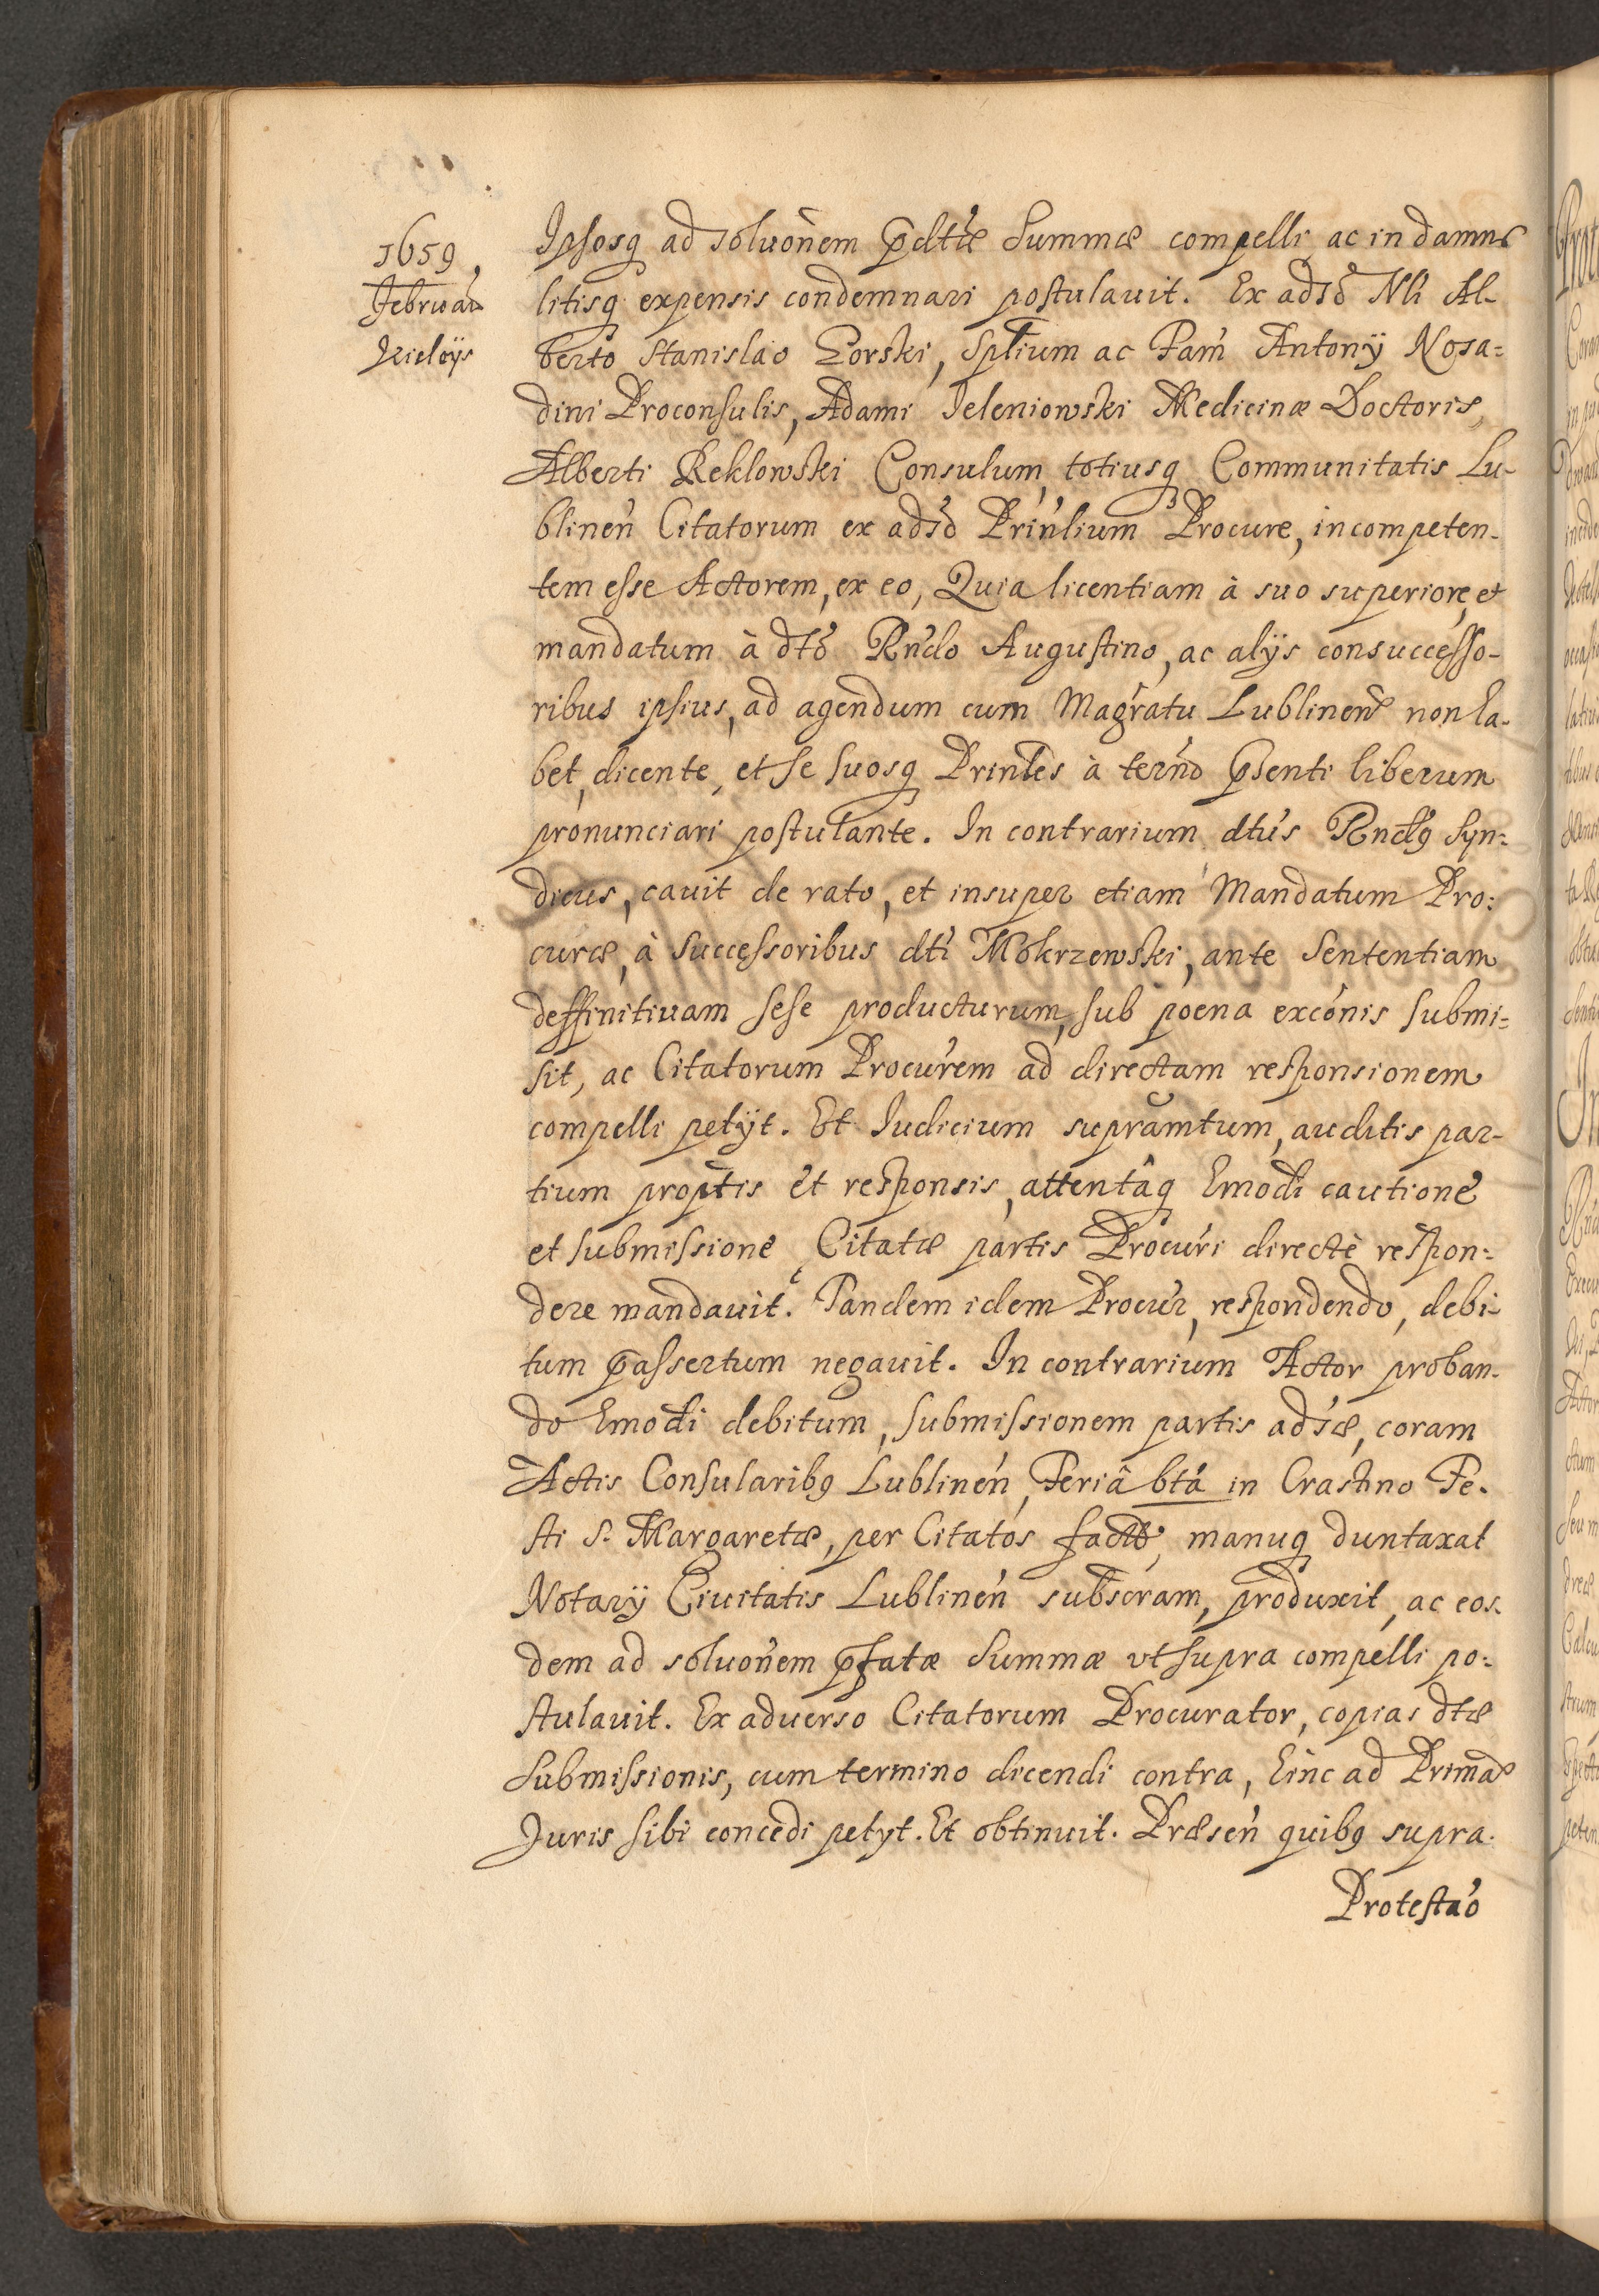 1659
Februar
Kielcijs
Ipsosq ad soluonem pdctæ Summæ compelli ac in damnis
litisq expensis condemnari postulauit. Ex adso Nli Al-
berto Stanislao Gorski, Splium ac Fam Antonij Nosa=
dini Proconsulis, Adami Jeleniowski Medicinæ Doctoris,
Alberti Reklowski Consulum, totiusq Communitatis Lu-
blinen Citatorum ex adso Prinlium Procure, incompeten-
tem esse Actorem, ex eo, Quia licentiam à suo superiore, et
mandatum à dto Rndo Augustino, ac alijs consuccesso-
ribus ipsius, ad agendum cum Magratu Lublinen non ha-
bet, dicente, et se suosq Prinles à termo pnsenti liberum
pronunciari postulante. In contrarium dtus Rndus Syn=
dicus, cauit de rato, et insuper etiam Mandatum Pro:
curæ, à Successoribus dti Mokrzewski, ante Sententiam
deffinitiuam sese producturum, sub poena exconis submi=
sit, ac Citatorum Procurem ad directam responsionem
compelli petijt. Et Iudicium supramtum, auditis par-
tium proptis et responsis, attentâq Emodi cautione
et submissione, Citatæ partis Procuri directè respon=
dere mandauit. Tandem idem Procur, respondendo, debi-
tum passertum negauit. In contrarium Actor proban-
do Emodi debitum, submissionem partis adsæ, coram
Actis Consularibq Lublinen, Feriâ 6tâ in Crastino Fe-
sti S. Margaretæ, per Citatos factæ, manuq duntaxat
Notarij Ciuitatis Lublinen subscram, produxit, ac eos-
dem ad soluonem pfatæ Summæ vt supra compelli po=
stulauit. Ex aduerso Citatorum Procurator, copias dtæ
Submissionis, cum termino dicendi contra, hinc ad Primas
Juris sibi concedi petyt. Et obtinuit. Præsen quibq supra.
Protestao